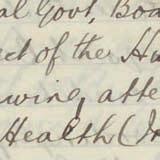 al Govt, Boa
ct of the Hu
wing, atte
Health (In